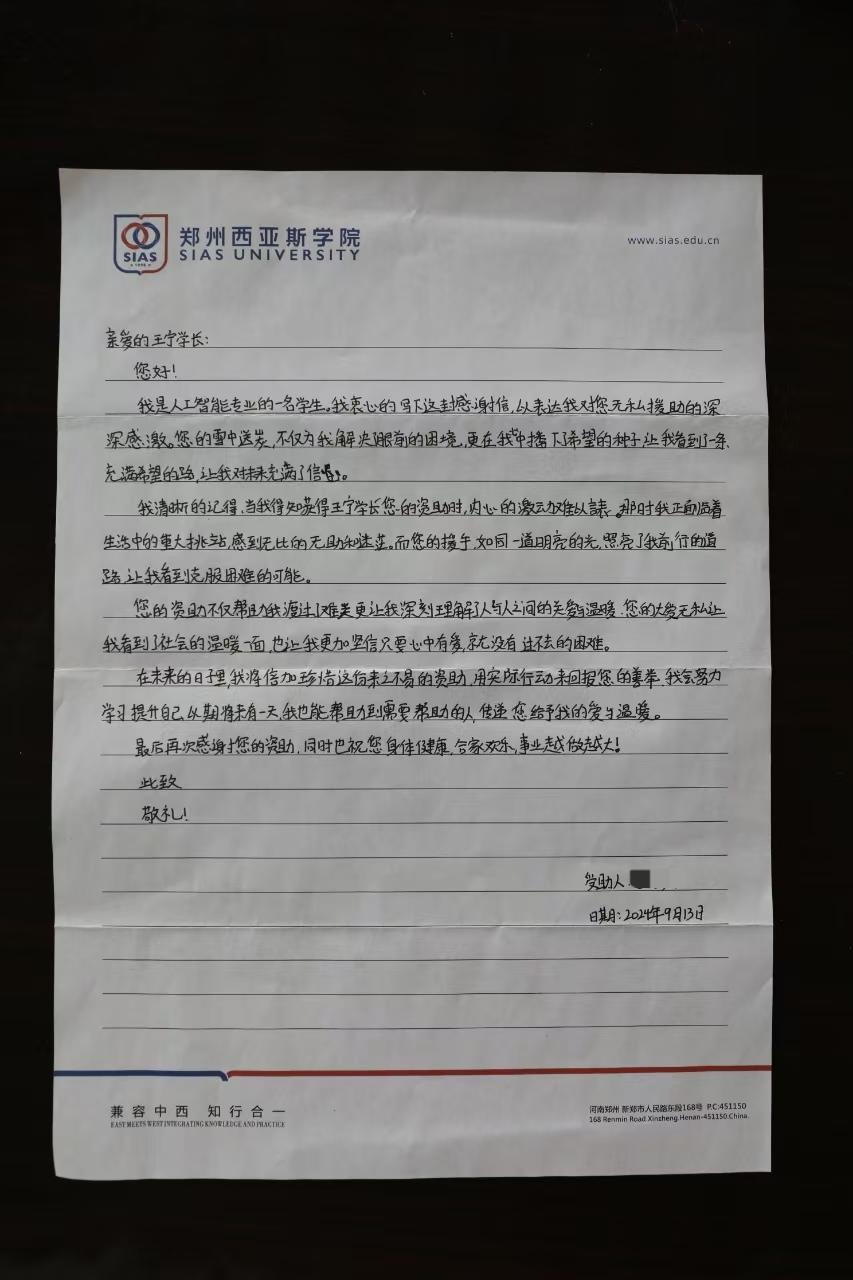 郑州西亚斯学院
SIAS UNIVERSITY
SIAS
www.sias.edu.cn
亲爱的王宁学长:
您好!
我是人工智能专业的一名学生。我衷心的写下这封感谢信,以表达我对您无私援助的深
深感激。您的雪中送炭,不仅为我解决了眼前的困境,更在我心中播下了希望的种子,让我看到了一条
充满希望的路,让我对未来充满了信心。
我清晰的记得,当我得知获得王宁学长您的资助时,内心的激动难以言表。那时我正面临着
生活中的重大挑战,感到无比的无助和迷茫。而您的援手,如同一道明亮的光,照亮了我前行的道
路,让我看到克服困难的可能。
您的资助不仅帮助我渡过了难关更让我深刻理解了人与人之间的关爱与温暖。您的大爱无私让
我看到了社会的温暖一面,也让我更加坚信只要心中有爱,就没有过不去的困难。
在未来的日子里,我将倍加珍惜这份来之不易的资助,用实际行动来回报您的善举。我会努力
学习提升自己,以期将来有一天,我也能帮助到需要帮助的人,传递您给予我的爱与温暖。
最后再次感谢您的资助,同时也祝您身体健康,合家欢乐,事业越做越大!
此致
敬礼!
受助人
日期:2024年9月13日
兼容中西 知行合一
EAST MEETS WEST INTEGRATING KNOWLEDGE AND PRACTICE
河南郑州 新郑市人民路东段168号 P.C:451150
168 Renmin Road Xinzheng.Henan-451150.China.